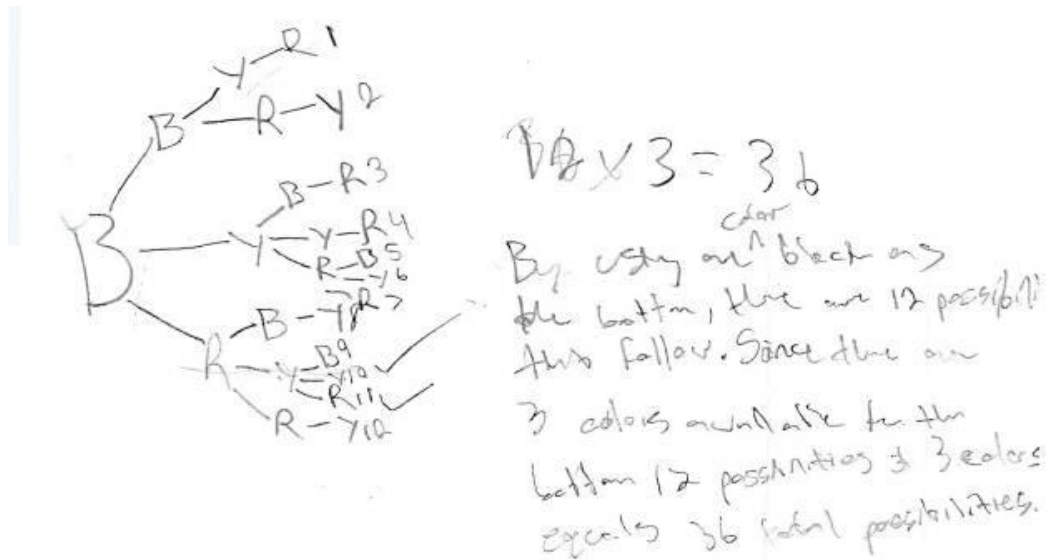 B
B Y R 1
R Y 2
Y B R 3
Y R 4
R B 5
Y 6
R B Y R 7
Y 8
Y B 9
Y 10
R 11
R Y 12
12 x 3 = 36
color
By using one ^ block as
the bottom, there are 12
this follow. Since there are
3 colors available for the
bottom 12 possibilities x 3 colors
equals 36 total possibilities.